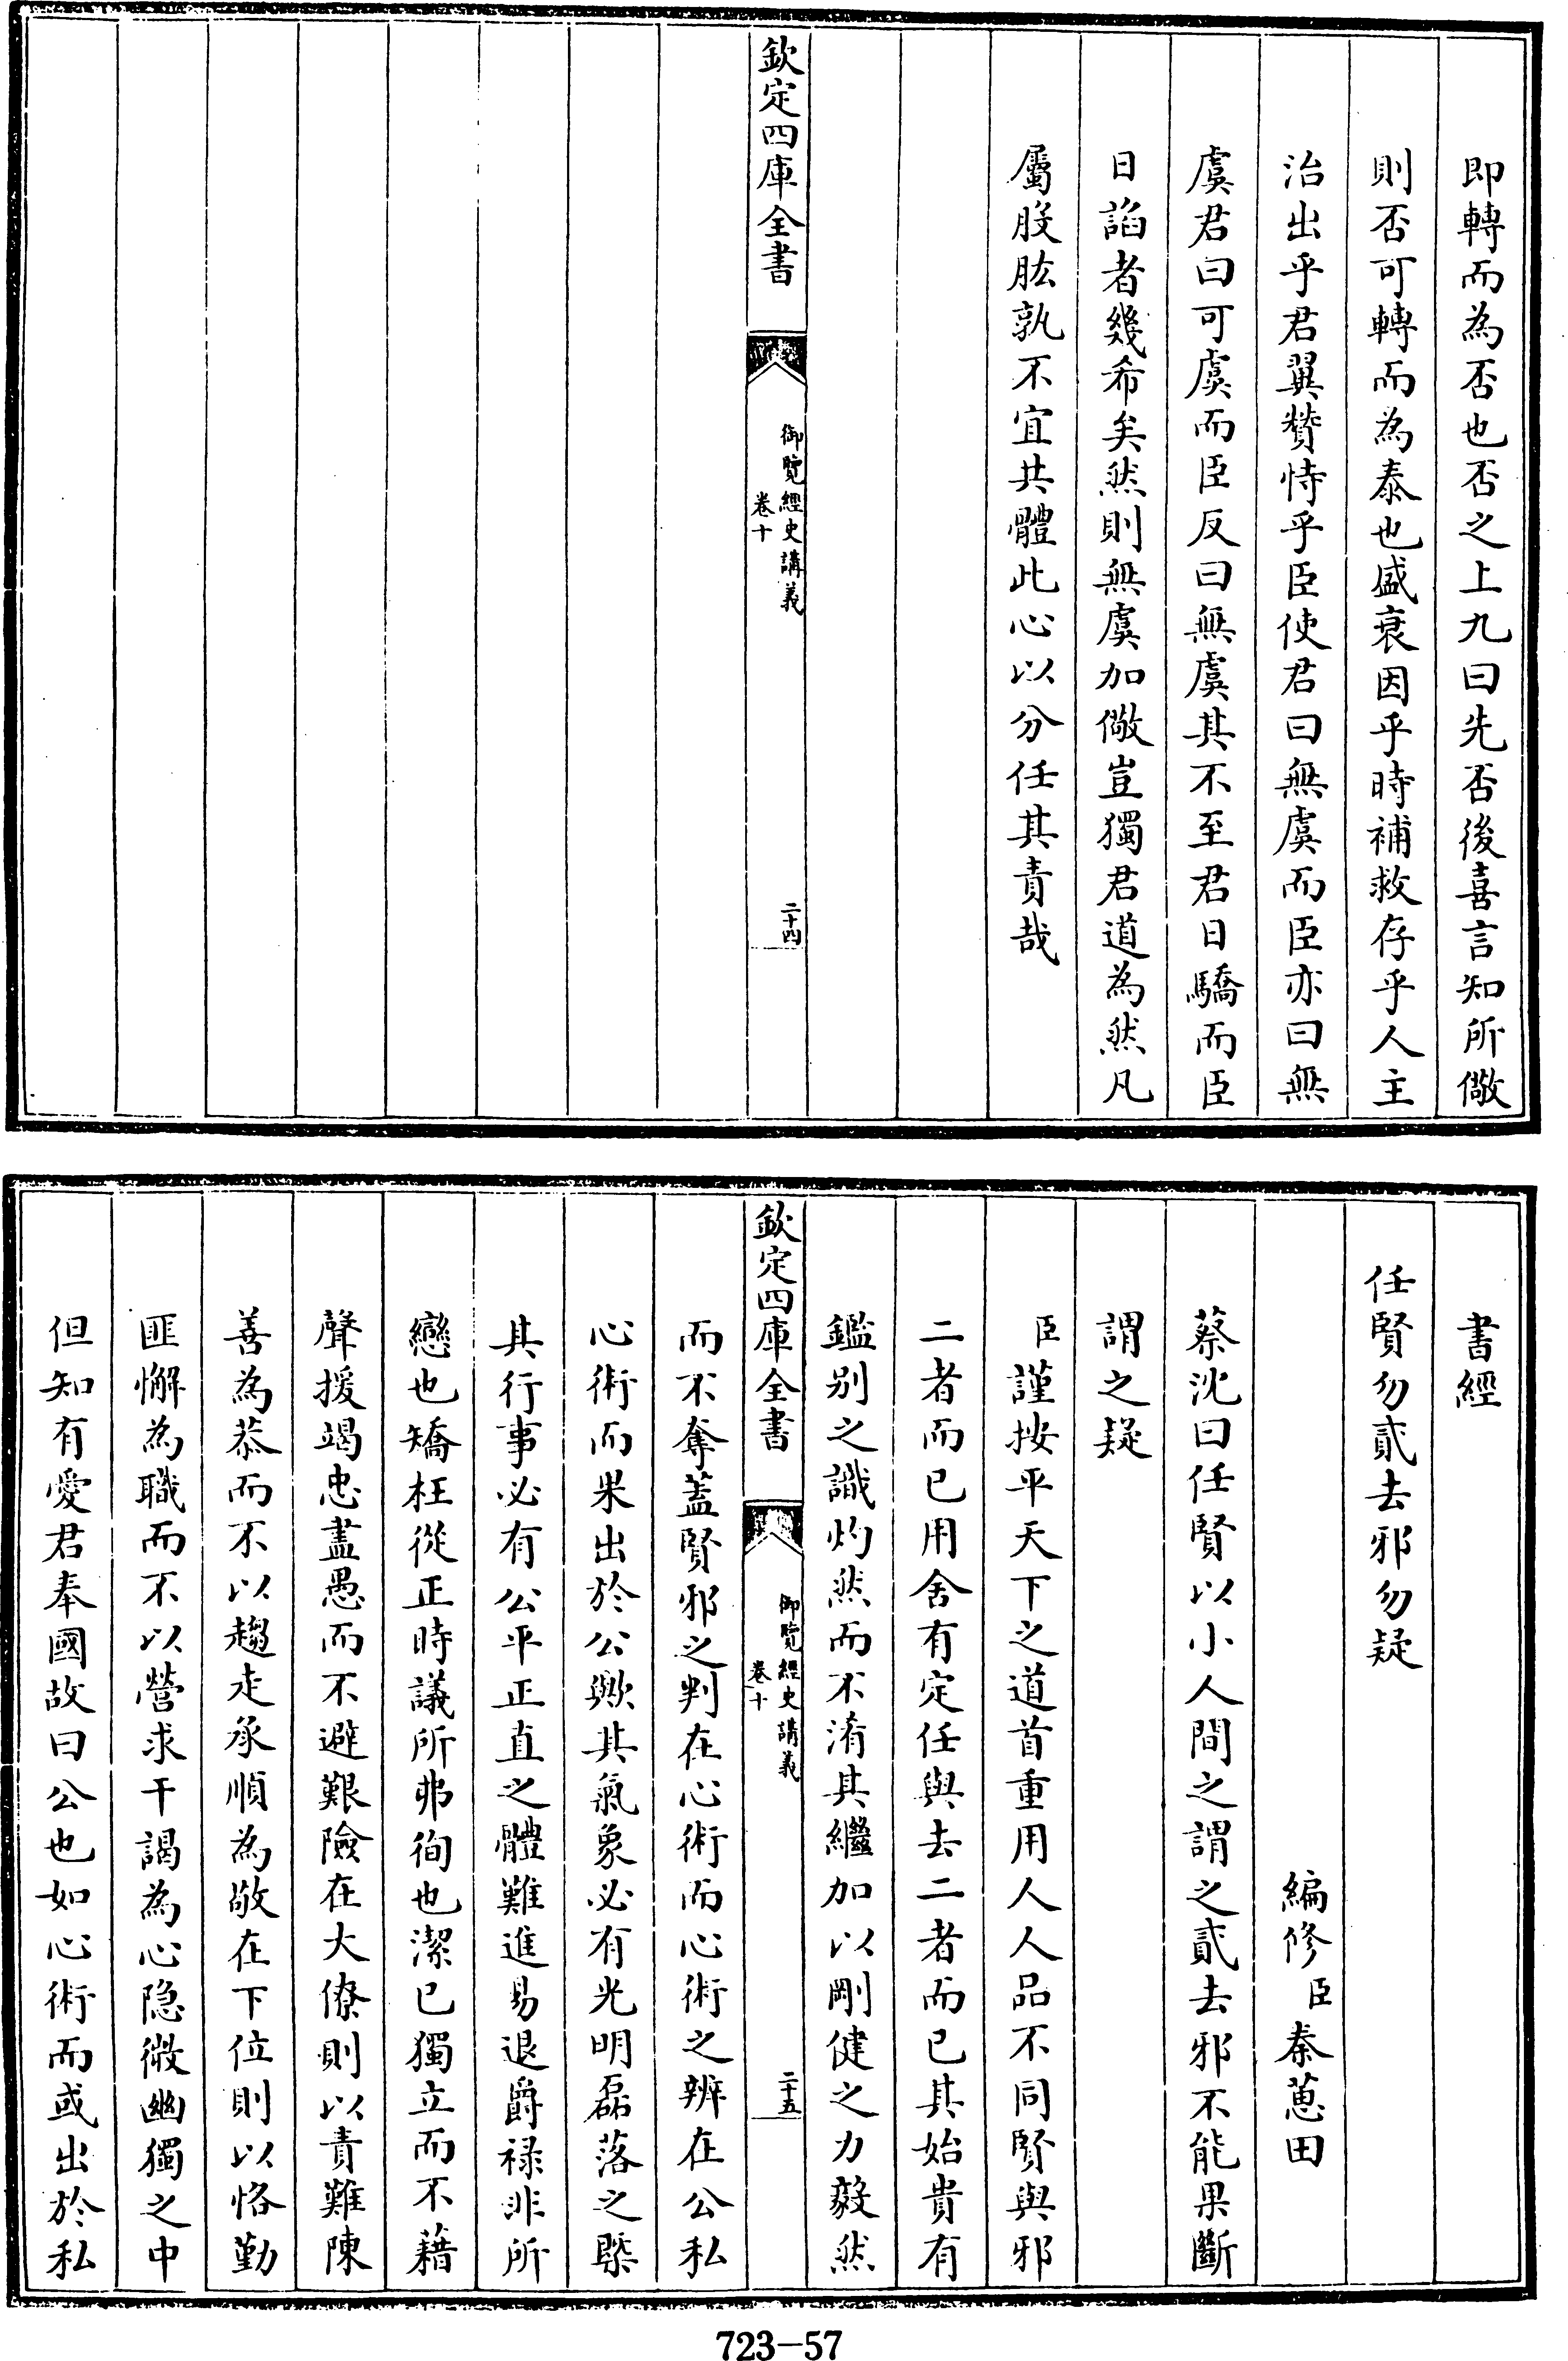 即轉而為否也否之上九曰先否後喜言知所儆
則否可轉而為泰也盛衰因乎時補救存乎人主
治出乎君翼贊恃乎臣使君曰無虞而臣亦曰無
虞君曰可虞而臣反曰無虞其不至君日驕而臣
日諂者幾希矣然則無虞加儆豈獨君道為然凡
屬股肱孰不宜共體此心以分任其責哉
欽定四庫全書
御覽經史講義
卷十
二十四
書經
任賢勿貳去邪勿疑
編修臣秦蕙田
蔡沈曰任賢以小人間之謂之貳去邪不能果斷
謂之疑
臣謹按平天下之道首重用人人品不同賢與邪
二者而已用舍有定任與去二者而已其始貴有
鑑別之識灼然而不淆其繼加以剛健之力毅然
欽定四庫全書
御覽經史講義
卷十
二十五
而不奪蓋賢邪之判在心術而心術之辨在公私
心術而果出於公歟其氣象必有光明磊落之槩
其行事必有公平正直之體難進易退爵祿非所
戀也矯枉從正時議所弗徇也潔已獨立而不藉
聲援竭忠盡愚而不避艱險在大僚則以責難陳
善為恭而不以趨走承順為敬在下位則以恪勤
匪懈為職而不以營求干謁為心隐微幽獨之中
但知有愛君奉國故曰公也如心術而或出於私
723-57